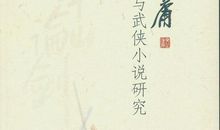 庸
与武侠小说研究